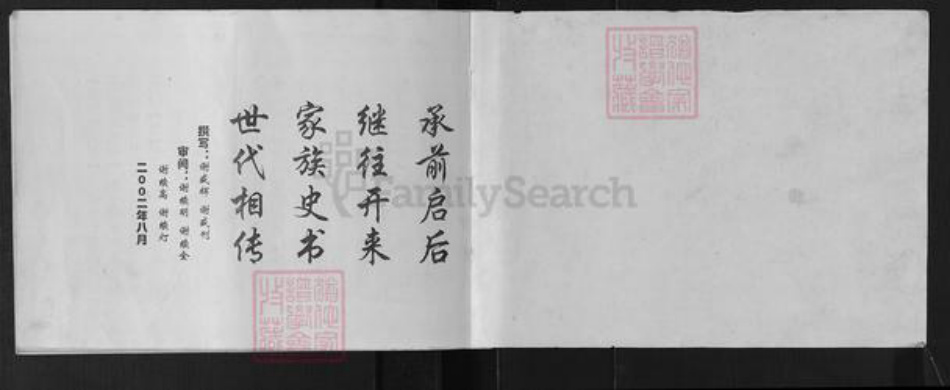 承前启后
继往开来
家族史书
世代相传
撰写：谢成辉 谢成刊
审阅：谢续明 谢续全
谢续高 谢续灯
二00二年八月
FamilySearch